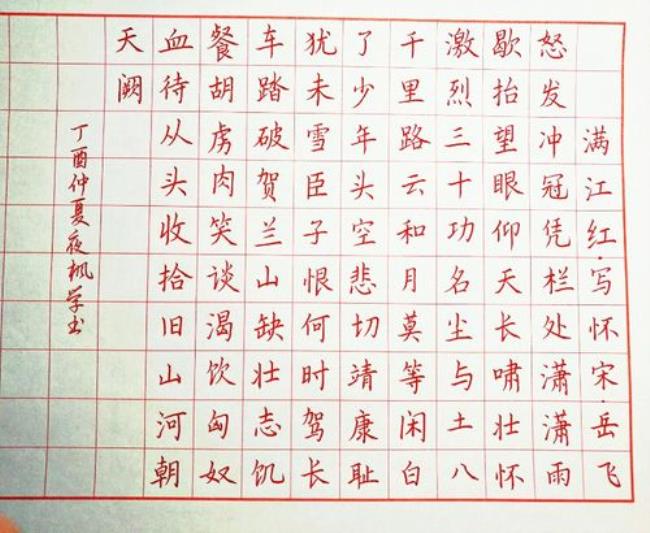 满江红·写怀宋·岳飞
怒发冲冠凭栏处潇潇雨
歇抬望眼仰天长啸壮怀
激烈三十功名尘与土八
千里路云和月莫等闲白
了少年头空悲切靖康耻
犹未雪臣子恨何时驾长
车踏破贺兰山缺壮志饥
餐胡虏肉笑谈渴饮匈奴
血待从头收拾旧山河朝
天阙
丁酉仲夏夜枫学书